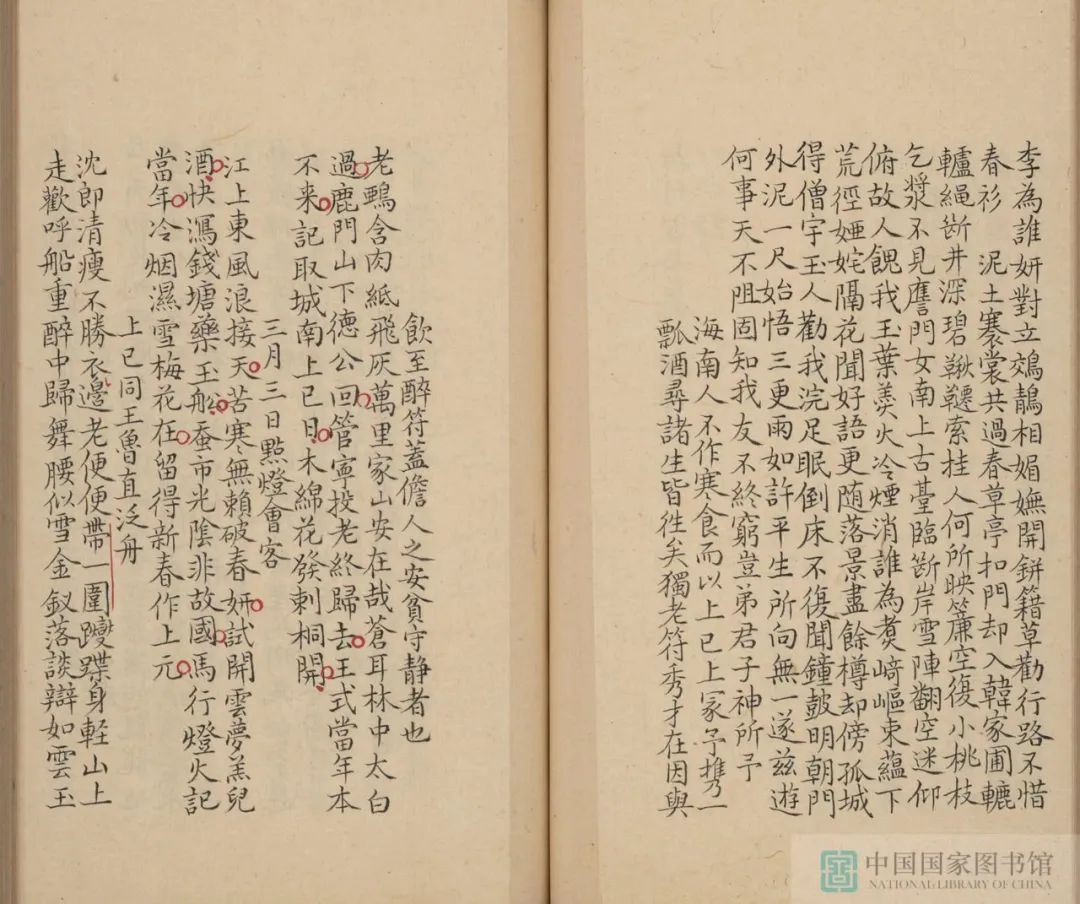 李為誰妍對立鵁鶄相媚嫵開缾籍草勸行路不惜
春衫　泥土褰裳共過春草亭扣門却入韓家圃轆
轤繩斷井深碧鞦韆索挂人何所映簾空復小桃枝
乞漿不見應門女南上古臺臨斷岸雪陣翻空迷仰
俯故人餽我玉葉羹火冷煙消誰為煑崎嶇束蘊下
荒徑婭姹隔花聞好語更随落景盡餘樽却傍孤城
得僧宇玉人勸我浣足眠倒床不復聞鐘皷明朝門
外泥一尺始悟三更雨如許平生所向無一遂兹遊
何事天不阻固知我友不終窮豈弟君子神所予
海南人不作寒食而以上巳上冢予携一
瓢酒尋諸生皆徃矣獨老符秀才在因與
飲至醉符蓋儋人之安貧守静者也
老鵶含肉紙飛灰萬里家山安在哉蒼耳林中太白
過鹿門山下德公回管寧投老終歸去王式當年本
不来記取城南上巳日木綿花發刺桐開
三月三日點燈會客
江上東風浪接天苦寒無賴破春妍試開雲夢羔兒
酒快瀉錢塘藥玉船蚕市光陰非故國馬行燈火記
當年冷烟濕雪梅花在留得新春作上元
上巳同王魯直泛舟
沈郎清瘦不勝衣邊老便便帶一圍躞蹀身輕山上
走歡呼船重醉中歸舞腰似雪金釵落談辯如雲玉
中国国家图书馆
NATIONAL LIBRARY OF CHINA